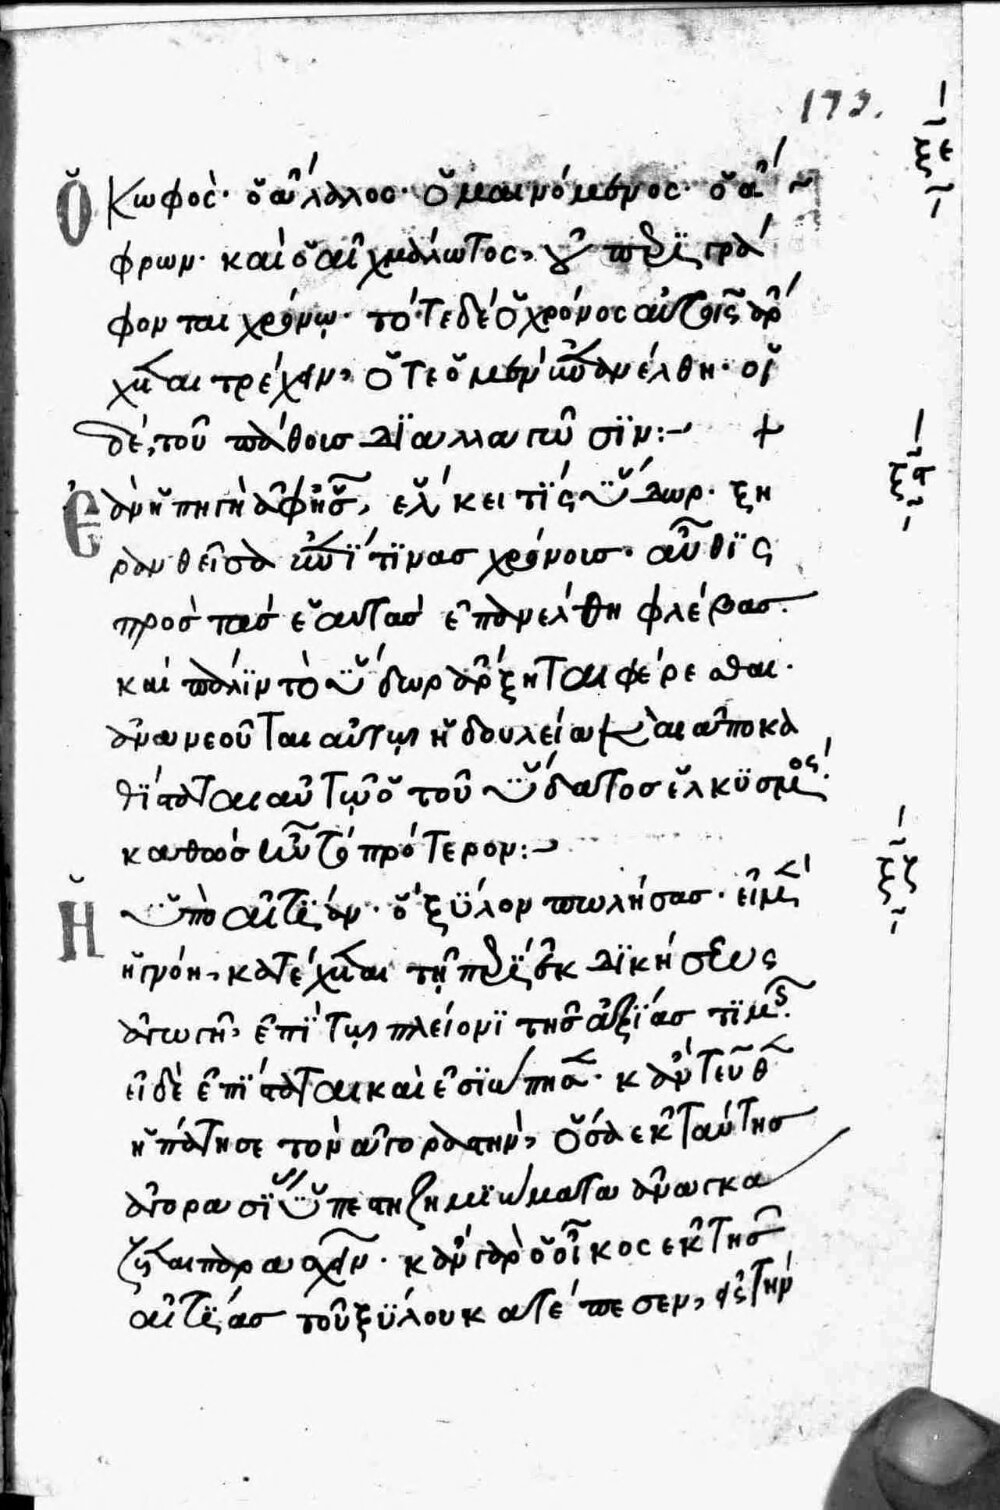 173.
ξε
Ὁ κωφὸς· ὁ ἄλαλος· ὁ μαινόμενος· ὁ ἄ
φρων· καὶ ὁ αἰχμάλωτος, οὐ περιγρά
φονται χρόνῳ· τότε δὲ ὁ χρόνος αὐτοῖς ἄρ
χεται τρέχειν, ὅτε ὁ μὲν ἐπανέλθη· οἱ
δὲ, τοῦ πάθους ἀπαλλαγῶσϊν:– +
ξϛ
Ἐὰν ἡ πηγὴ ἀφ' ἧς, εἷλκει τῒς ὕδωρ· ξη
ρανθεῖσα ἐπῒ τϊνας χρόνους· αὖθϊς
πρὸς τὰς ἑαυτὰς ἐπανέλθη φλέβας·
καὶ πάλϊν τὸ ὕδωρ ἄρξηται φέρεσθαι·
ἀνανεοῦται αὐτῳ ἡ δουλεία καὶ ἀποκα
θΐσταται αὐτῷ ὁ τοῦ ὕδατος ἑλκϋσμός·
καθὼς ἦν τὸ πρότερον:–
ξζ
Ἡ ὑπὸ αἰτϊᾶν· ὁ ξϋλον πωλήσας· εἰ μὲν
ἠγνόει, κατέχεται τῇ περὶ ἐκδϊκήσεως
ἀγωγῇ, ἐπῒ τῳ πλείονϊ τῆς ἀξΐας τϊμῆς·
εἰ δὲ ἐπΐσταται καὶ ἐσϊώπησεν· κἀντεῦθεν
ἠπάτησε τὸν ἀγοραστὴν, ὅσα ἐκ ταύτης
ἀγορασϊ ὑπέστη ζημϊώματα ἀναγκά
ζεται παρασχεῖν· κἂν γὰρ ὁ οἶκος ἐκ τῆς
αἰτΐας τοῦ ξϋλου κατέπεσεν, εἰς τὴν